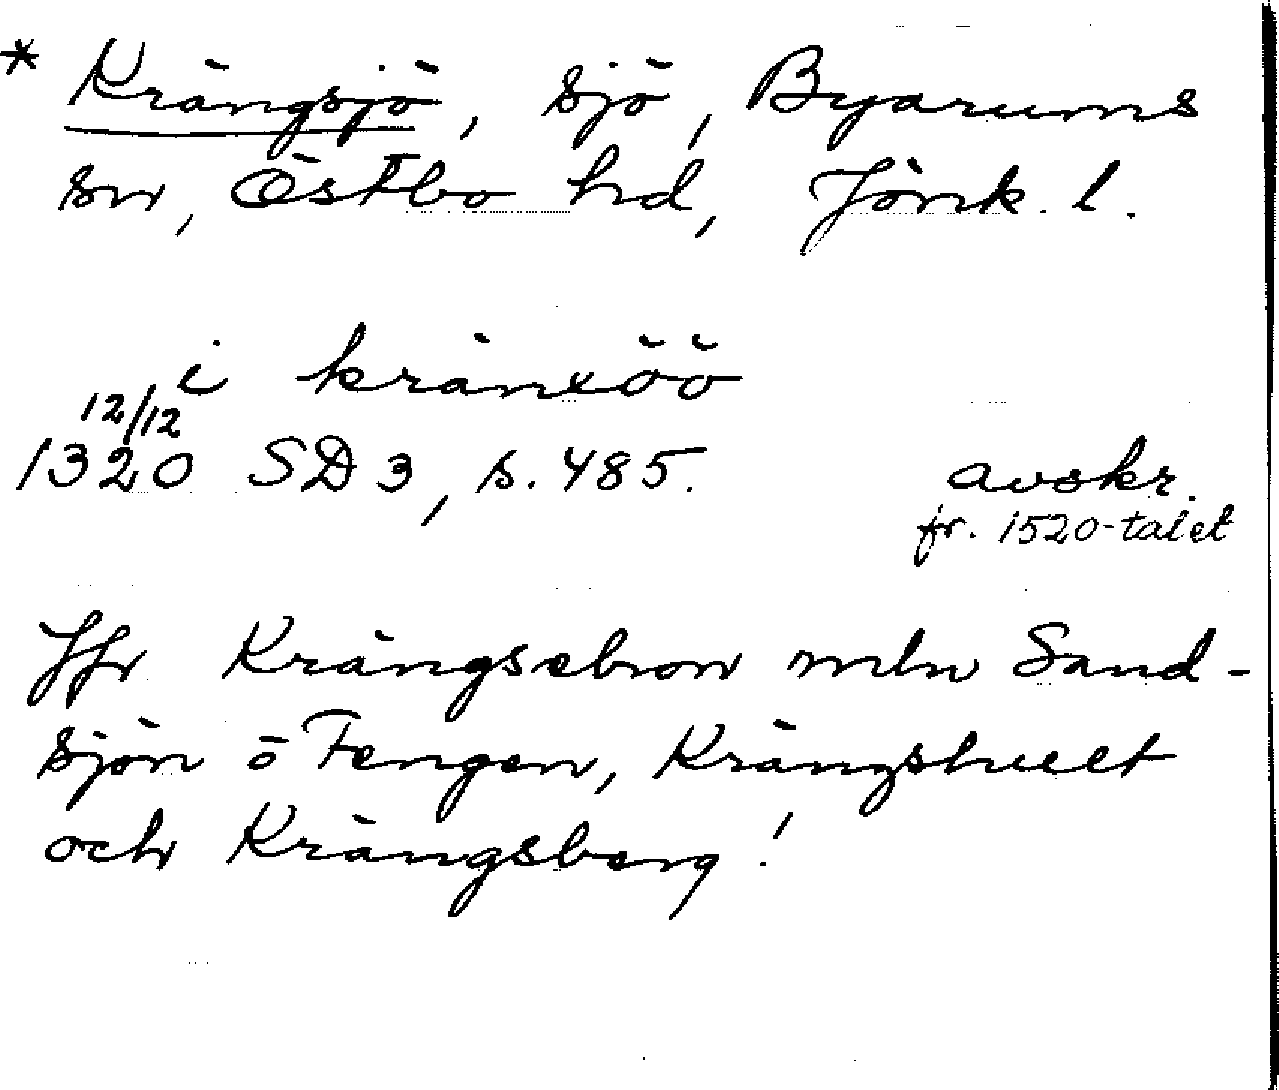 * Krängsjö, sjö, Byarums
sn, Östbo hd, Jönk. l.
i kränxöö
12/12
1320 SD 3, s. 485. avskr.
fr. 1520-talet
Jfr Krängsebron mln Sand-
sjön o Fengen, Krängshult
och Krängsberg!